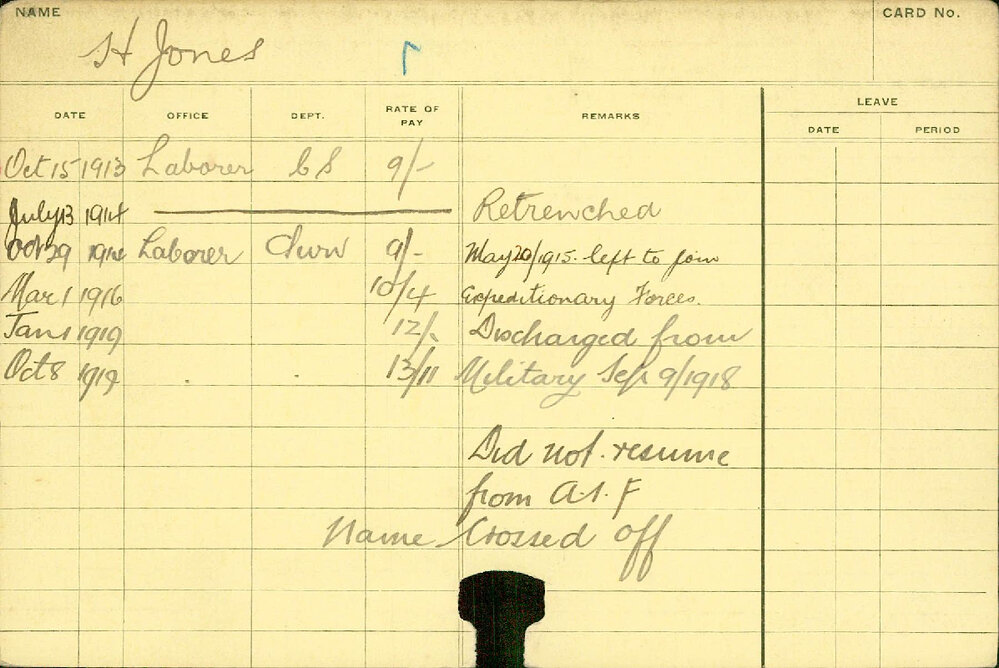 NAME
CARD No.
H Jones
DATE OFFICE DEPT. RATE OF PAY REMARKS LEAVE
DATE PERIOD
Oct 15 1913 Laborer 9/-
July 13 1914 Retrenched
Oct 29 1914 Laborer 9/- May 20/1915. left to join
Mar 1 1916 10/4 Expeditionary Forces.
Jan 1 1919 12/- Discharged from
Oct 8 1919 13/11 Military Sep 9/1918
Did not resume
from A.I.F
Name Crossed off